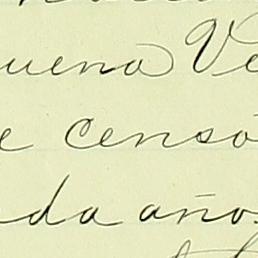 uena Ve
e censó
da años